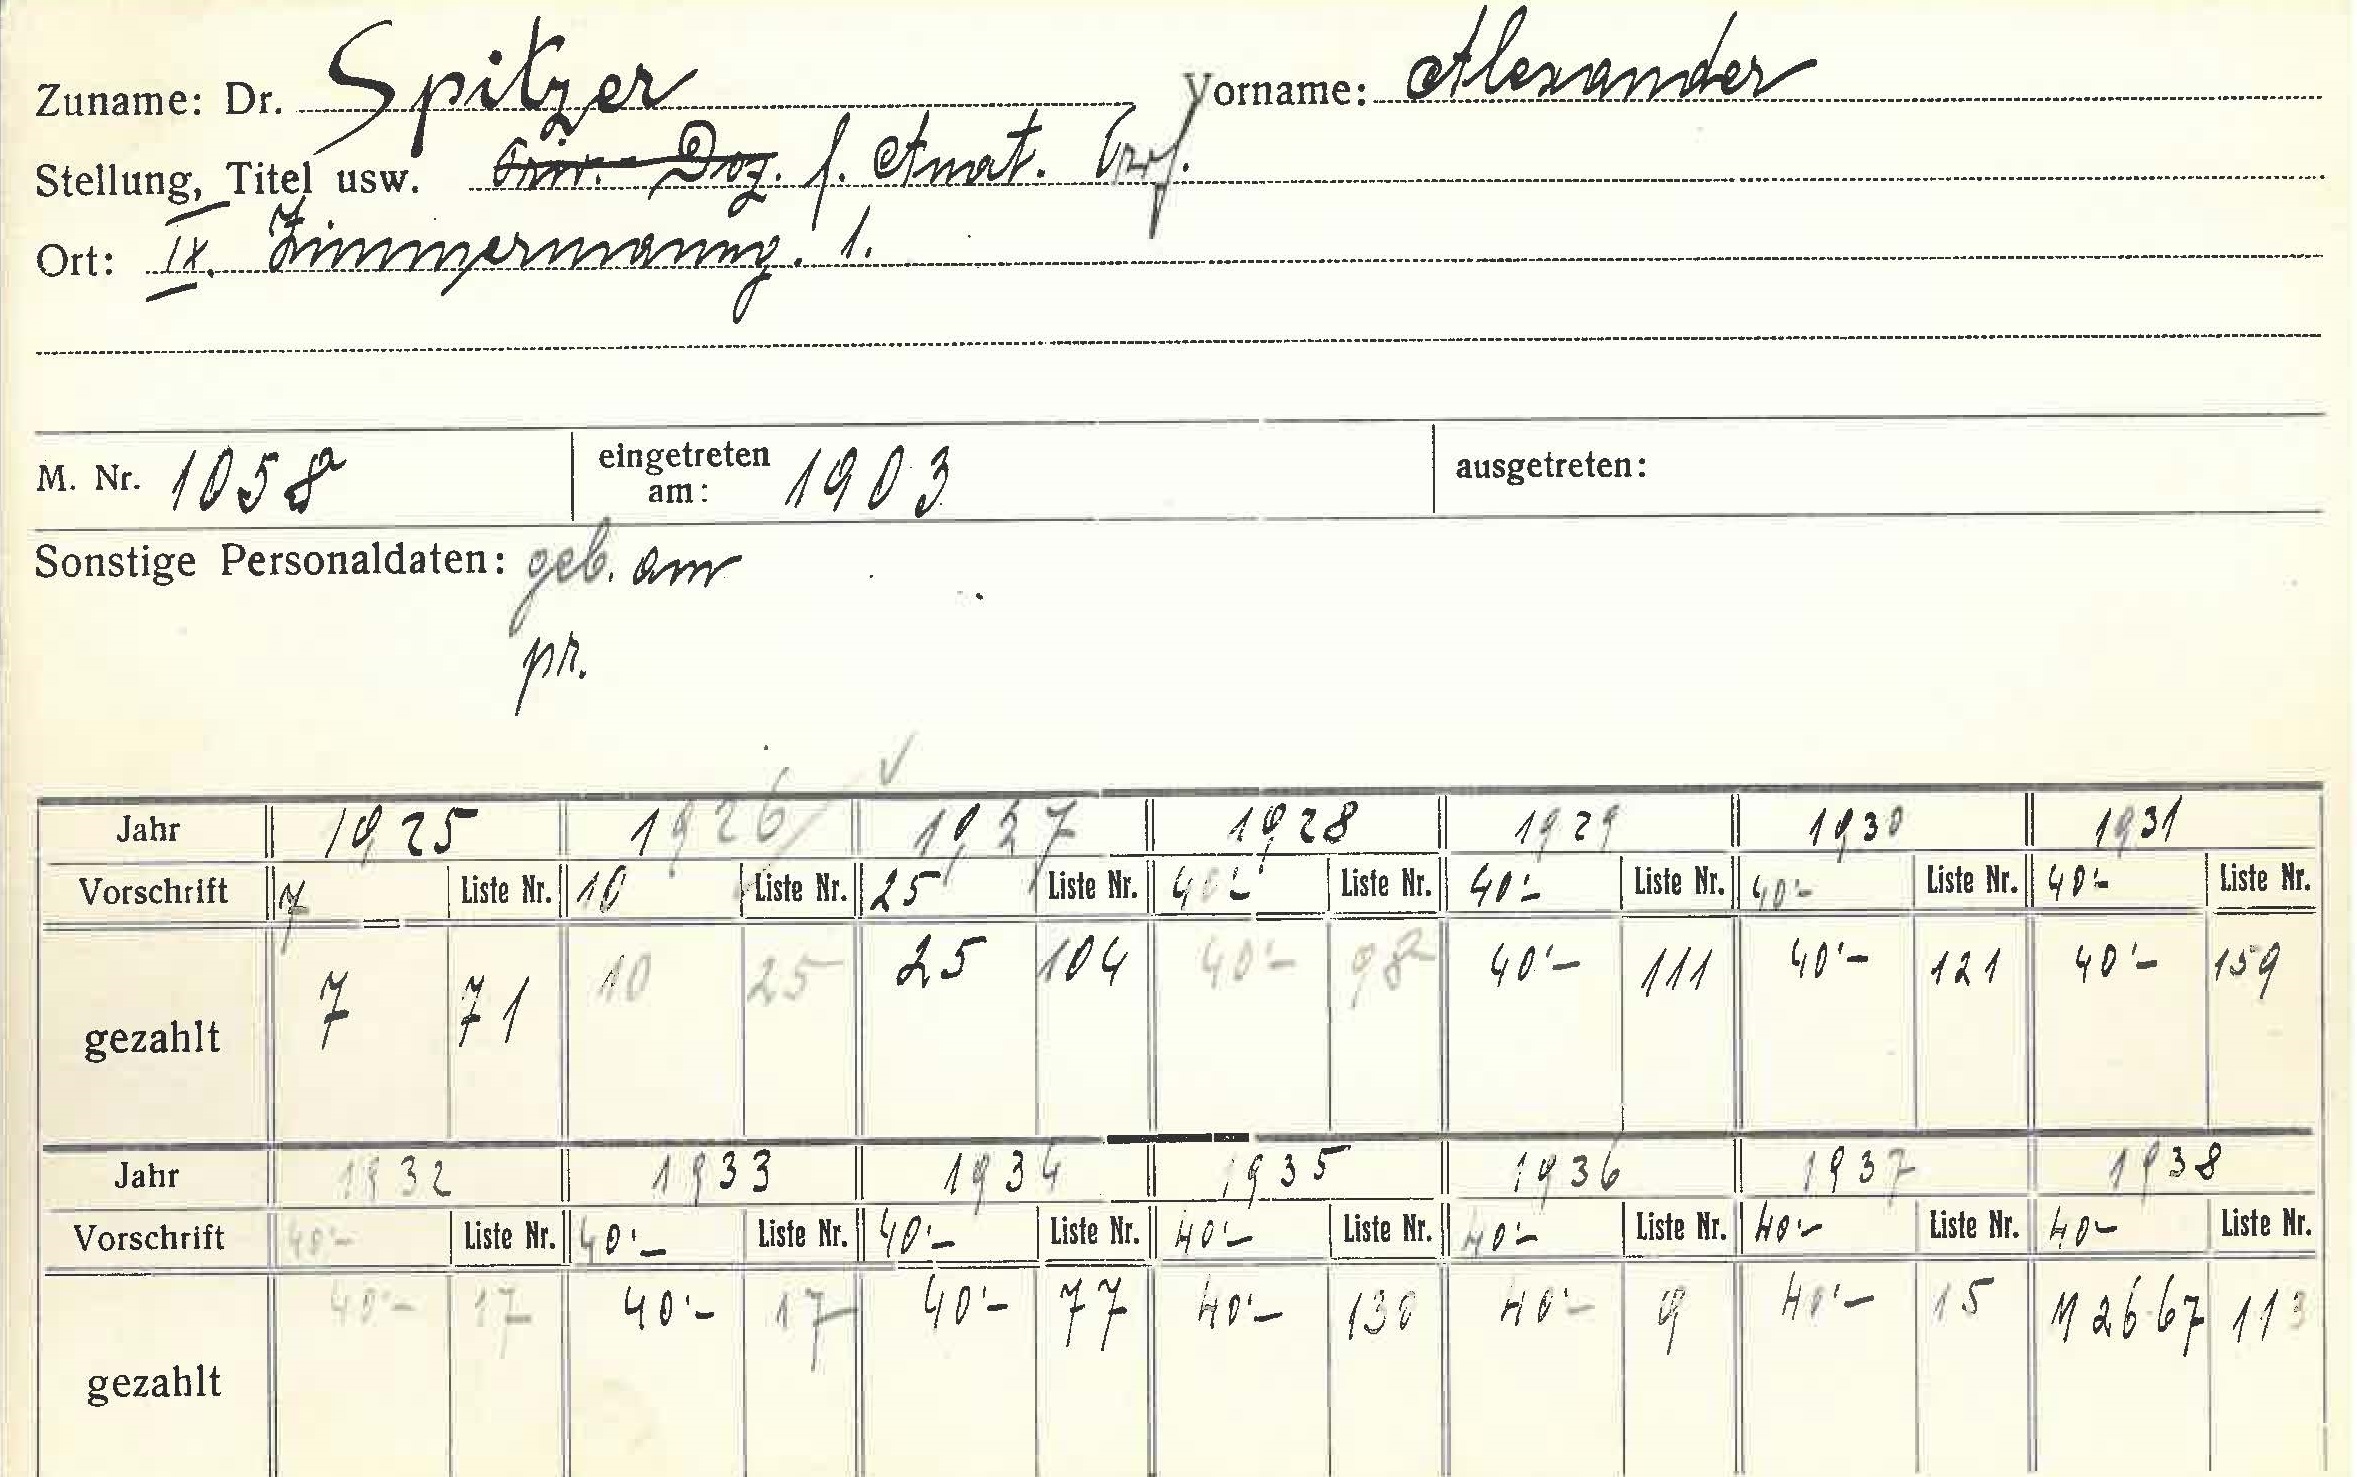 Zuname: Dr. Spitzer Vorname: Alexander
Stellung, Titel usw. Priv.-Doz. f. Anat. Prof.
Ort: IX. Zimmermanng. 1.
M. Nr. 1058 eingetreten am: 1903 ausgetreten:
Sonstige Personaldaten: geb. am
pr.
Jahr 1925 1926 1927 1928 1929 1930 1931
Vorschrift 7 Liste Nr. 10 Liste Nr. 25 Liste Nr. 40'- Liste Nr. 40'- Liste Nr. 40'- Liste Nr. 40'- Liste Nr.
gezahlt 7 71 10 25 25 104 40'- 98 40'- 111 40'- 121 40'- 159
Jahr 1932 1933 1934 1935 1936 1937 1938
Vorschrift 40'- Liste Nr. 40'- Liste Nr. 40'- Liste Nr. 40'- Liste Nr. 40'- Liste Nr. 40'- Liste Nr. 40'- Liste Nr.
gezahlt 40'- 17 40'- 17 40'- 77 40'- 130 40'- 9 40'- 15 M 26·67 113